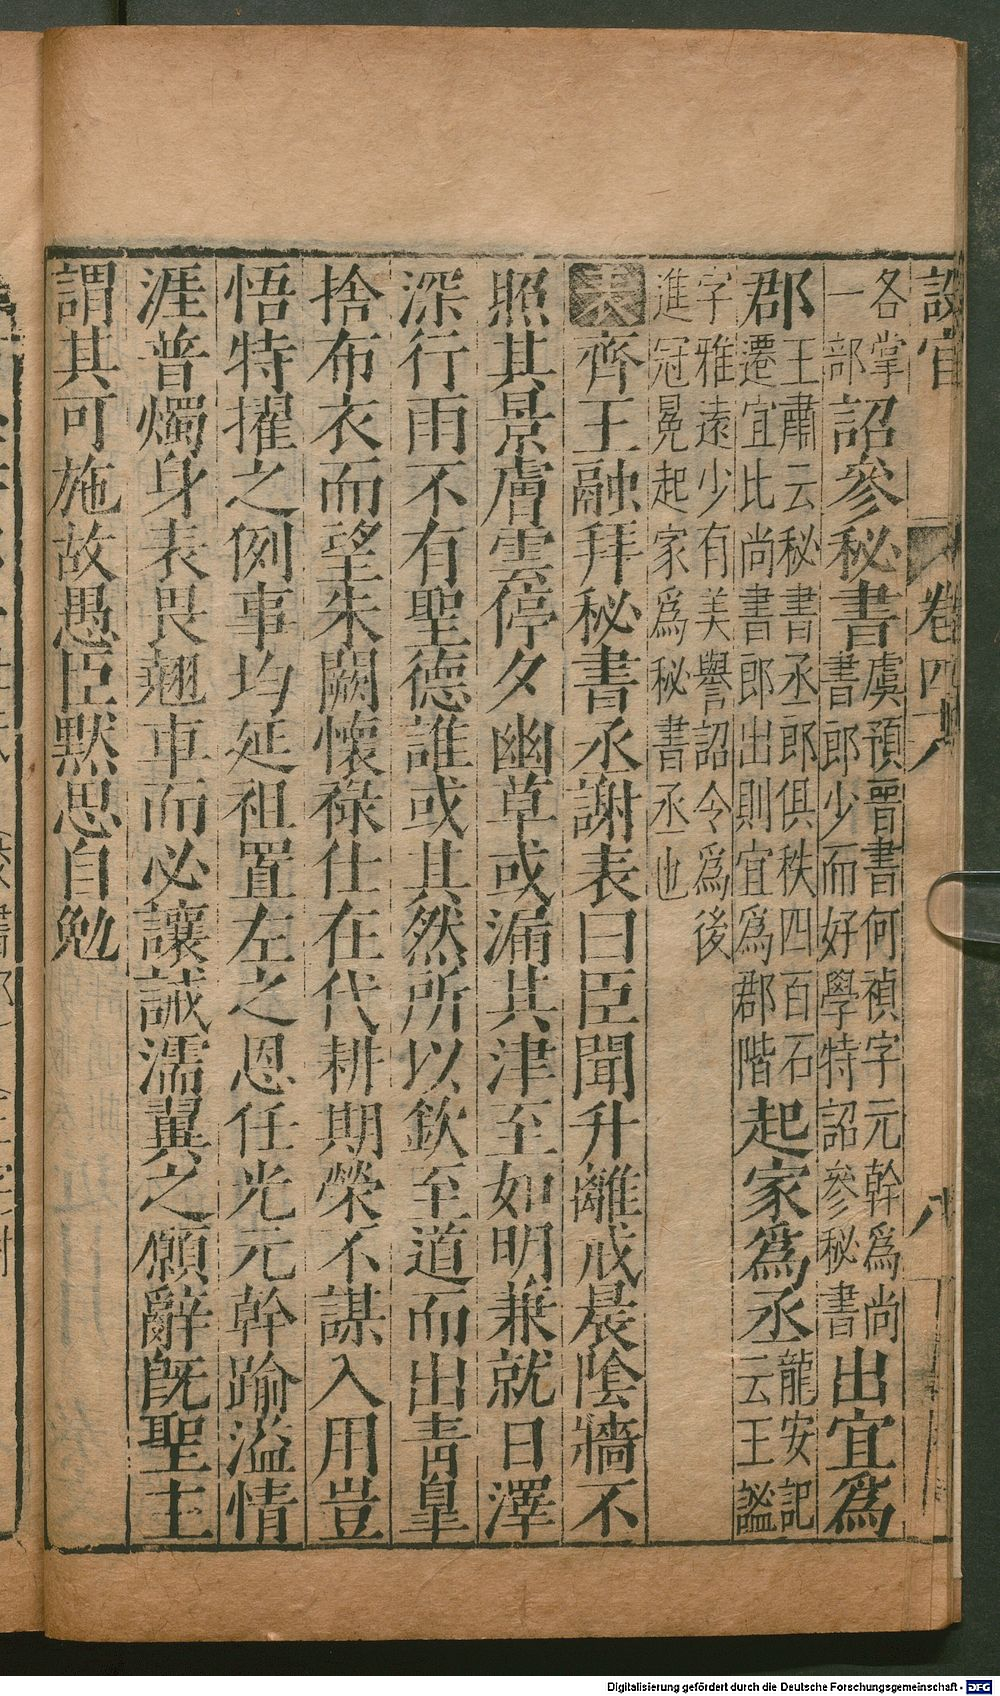 設官 卷四 八
各掌一部詔參秘書虞預晉書何禎字元幹爲尚書郎少而好學特詔參秘書出宜爲
郡王肅云秘書丞郎俱秩四百石遷宜比尚書郎出則宜爲郡階起家爲丞龍安記云王謐
字雅遠少有美譽詔令爲後進冠冕起家爲秘書丞也
表齊王融拜秘書丞謝表曰臣聞升離戒晨陰牆不
照其景膚雲停夕幽草或漏其津至如明兼就日澤
深行雨不有聖德誰或其然所以欽至道而出青皐
捨布衣而望朱闕懷祿仕在代耕期榮不謀入用豈
悟特擢之例事均延祖置左之恩任光元幹踰溢情
涯普燭身表畏翹車而必讓誡濡翼之願辭旣聖主
謂其可施故愚臣默思自勉
Digitalisierung gefördert durch die Deutsche Forschungsgemeinschaft - DFG